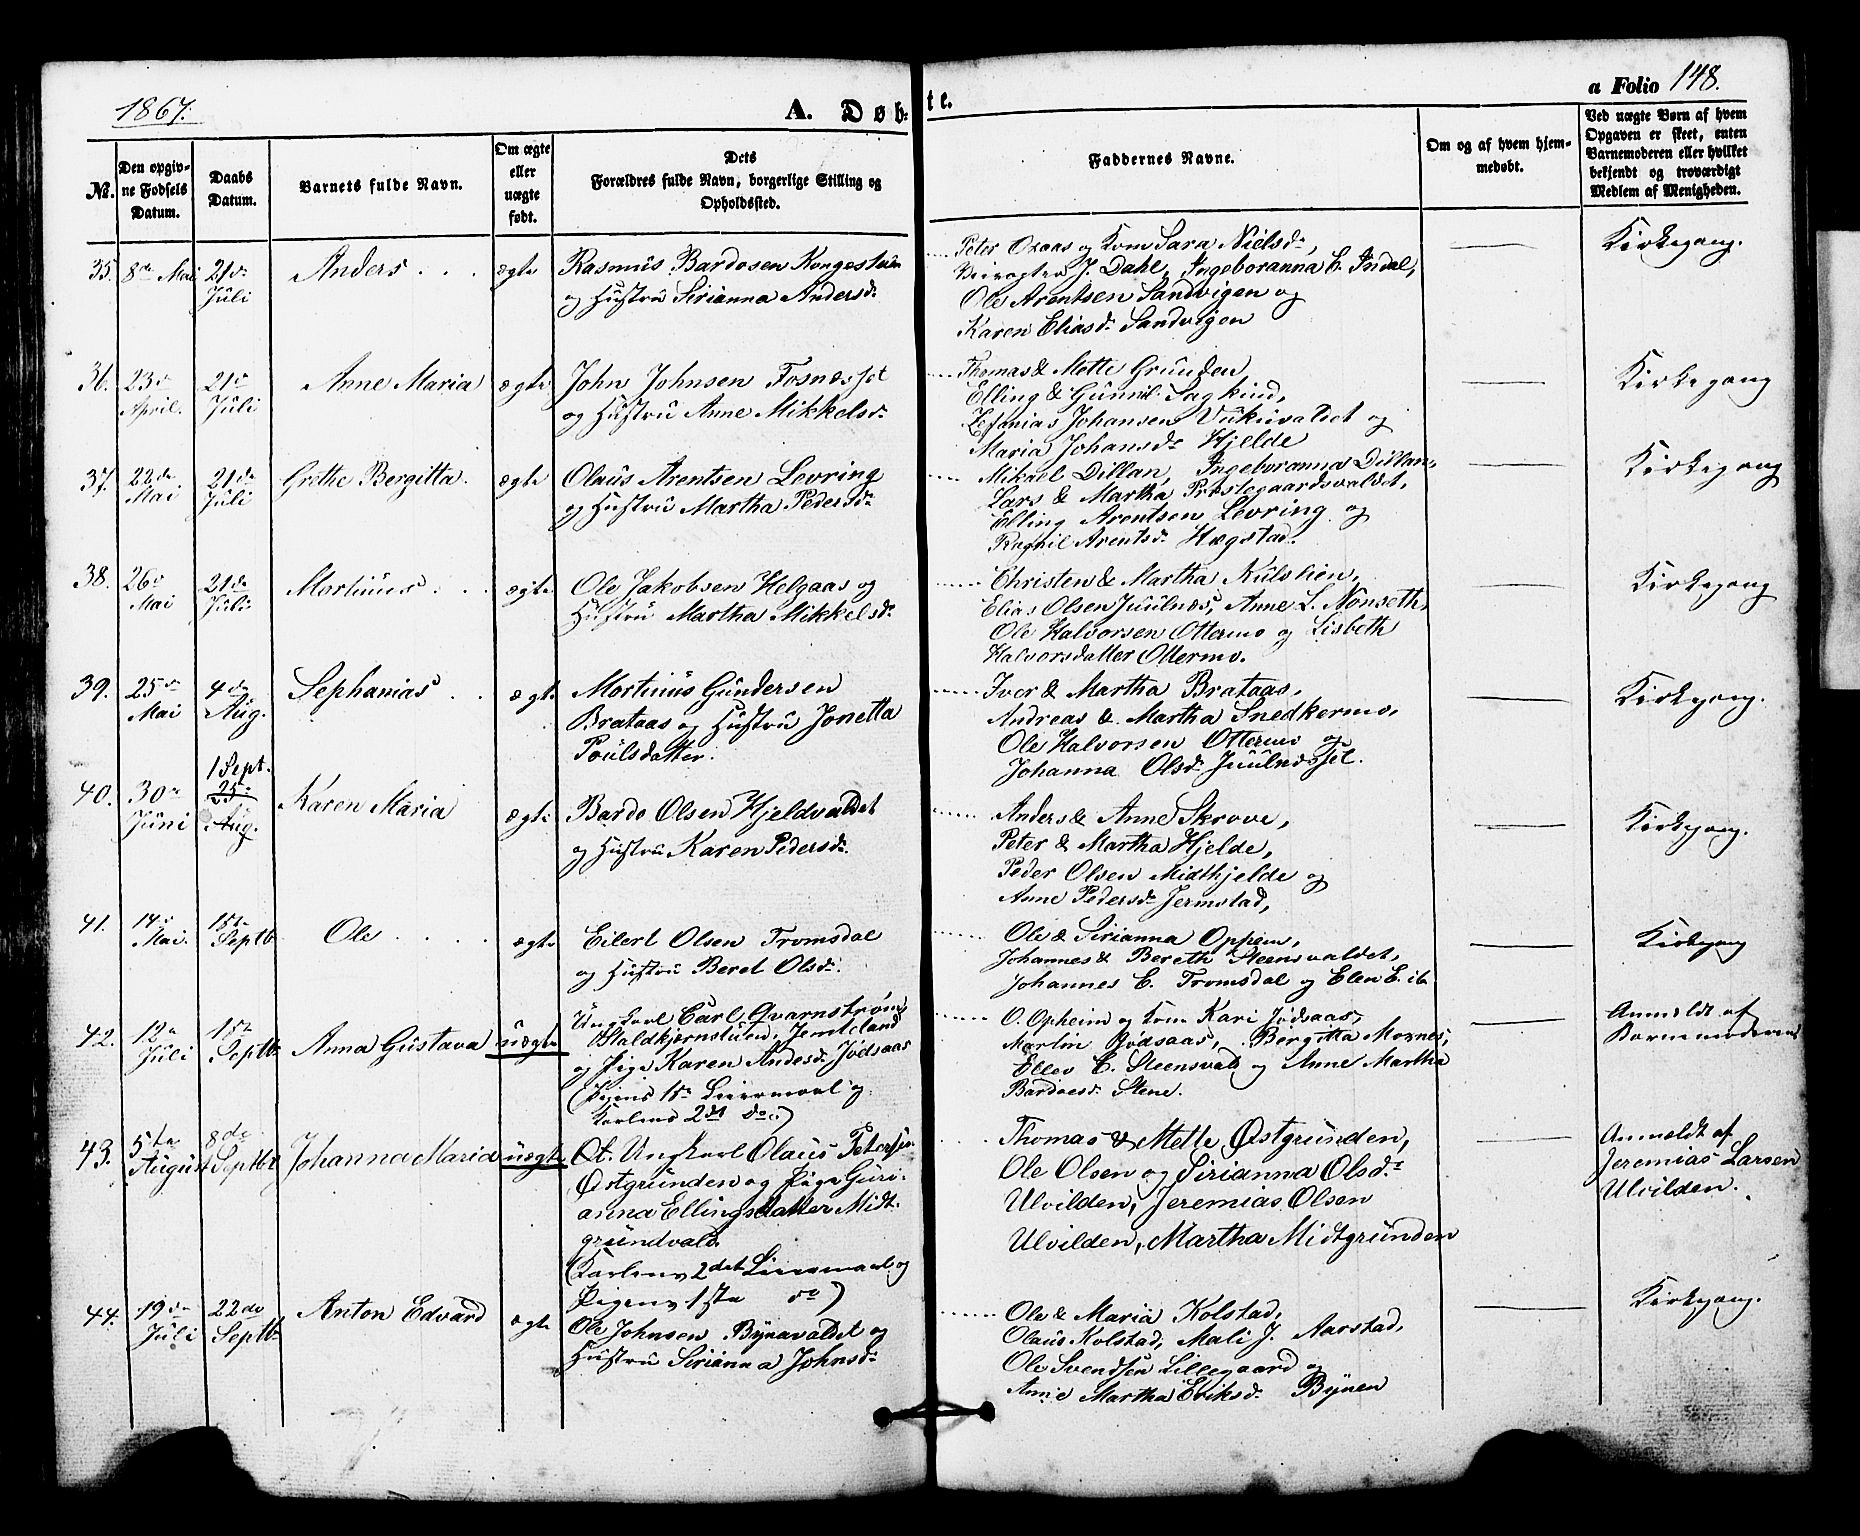 1867.
A. Døb-
te.
a Folio 148.
No.
Den opgiv-
ne Fødsels
Datum.
Daabs
Datum.
Barnets fulde Navn.
Om ægte
eller
uægte
født.
Dets
Forældres fulde Navn, borgerlige Stilling og
Opholdssted.
Faddernes Navne.
Om og af hvem hjem-
medøbt.
Ved uægte Børn af hvem
Opgaven er skeet, enten
Barnemoderen eller hvilket
bekjendt og troværdigt
Medlem af Menigheden.
35. 8de Mai 21de Juli Anders . . . ægte
Rasmus Bardosen Kongestuen
og Hustru Sirianna Andersd.
Peter Oxaas og Kone Sara Nielsd.,
J. Dahl, Ingeboranna E. Indal,
Ole Arentsen Sandvigen og
Karen Eliasd. Sandvigen
Kirkegang.
36. 23de April. 21de Juli Anne Maria ægte
John Johnsen Fosnesset
og Hustru Anne Mikkelsd.
Thomas & Mette Grunden,
Elling & Gunnil. Sagkind,
Zefanias Johansen Vukuvaldet og
Maria Johansd. Hjelde
Kirkegang
37. 22de Mai 21de Juli Grethe Bergitta. ægte
Olaus Arentsen Levring
og Hustru Martha Pedersd.
Mikael Dillan, Ingeboranna Dillan,
Lars & Martha Præstegaardsvaldet,
Elling Arentsen Levring og
Ragnil Arentsd. Hægstad.
Kirkegang
38. 26de Mai 21de Juli Mortinus . . . ægte
Ole Jakobsen Helgaas og
Hustru Martha Mikkelsd.
Christen & Martha Kulslien,
Elias Olsen Juulnæs, Anne L. Nonseth,
Ole Halvorsen Ottermo og Lisbeth
Halvorsdatter Ottermo.
Kirkegang
39. 25de Mai 4de Aug. Sephanias . . ægte
Mortinus Gundersen
Brataas og Hustru Jonetta
Poulsdatter.
Iver & Martha Brataas,
Andreas & Martha Snedkermo,
Ole Halvorsen Ottermo og
Johanna Olsd. Juulnæsset.
Kirkegang.
40. 30te Juni 1 Sept. 25de Aug. Karen Maria ægte
Bardo Olsen Hjeldvaldet
og Hustru Karen Pedersd.
Anders & Anne Skrove,
Peter & Martha Hjelde,
Peder Olsen Midthjelde og
Anne Pedersd. Jermstad,
Kirkegang.
41. 14de Mai. 1ste Septb. Ole . . . . ægte
Eilert Olsen Tromsdal
og Hustru Beret Olsd.
Ole & Sirianna Ophem,
Johannes & Bereth Steensvaldet,
Johannes E. Tromsdal og Elen E. ib.
Kirkegang
42. 12te Juli 1ste Septb. Anna Gustava uægte
Ungkarl Carl Qvarnstrøm
Jemteland
og Pige Karen Andersd. Jødsaas
(Pigens 1ste Leiermaal og
Karlens 2det do.)
O. Opheim og Kone Kari Jødsaas,
Martin Jødsaas, Bergitta Moxnes,
Ellev E. Steensvald og Anne Martha
Bardoesd. Stene.
Anmeldt af
Barnemoderen
43. 5te August 8de Septbr Johanna Maria uægte
Ungkarl Olaus Petersen
Østgrunden og Pige Guri-
anna Ellingsdatter Midt-
grundvald.
(Karlens 2det Leiermaal og
Pigens 1ste do)
Thomas & Mette Østgrunden,
Ole Olsen og Sirianna Olsd.
Ulvilden, Jeremias Olsen
Ulvilden, Martha Midtgrunden
Anmeldt af
Jeremias Larsen
Ulvilden.
44. 19de Juli 22de Septb. Anton Edvard ægte
Ole Johnsen Bynavaldet og
Hustru Sirianna Johnsd.
Ole & Maria Kolstad,
Olaus Kolstad, Mali J. Aarstad,
Ole Svendsen Lillegaard og
Anne Martha Eriksd. Bynen
Kirkegang.